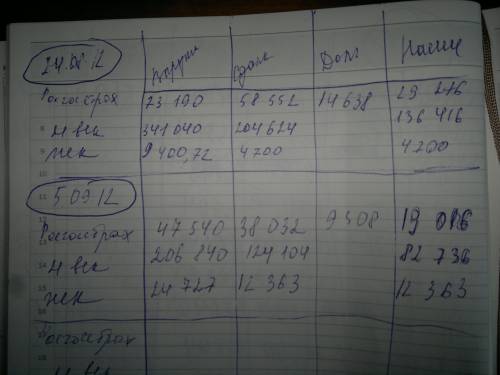 24.08.12 Наруж Сдали Долг Наши
Росгосстрах 73 190 58 552 14 638 29 276
4 век 341 040 204 624 136 416
жек 9 400,72 4 700 4 700
5 09 12
Росгосстрах 47 540 38 032 9 508 19 016
4 век 206 840 124 104 82 736
жек 24 727 12 363 12 363
Росгосстрах